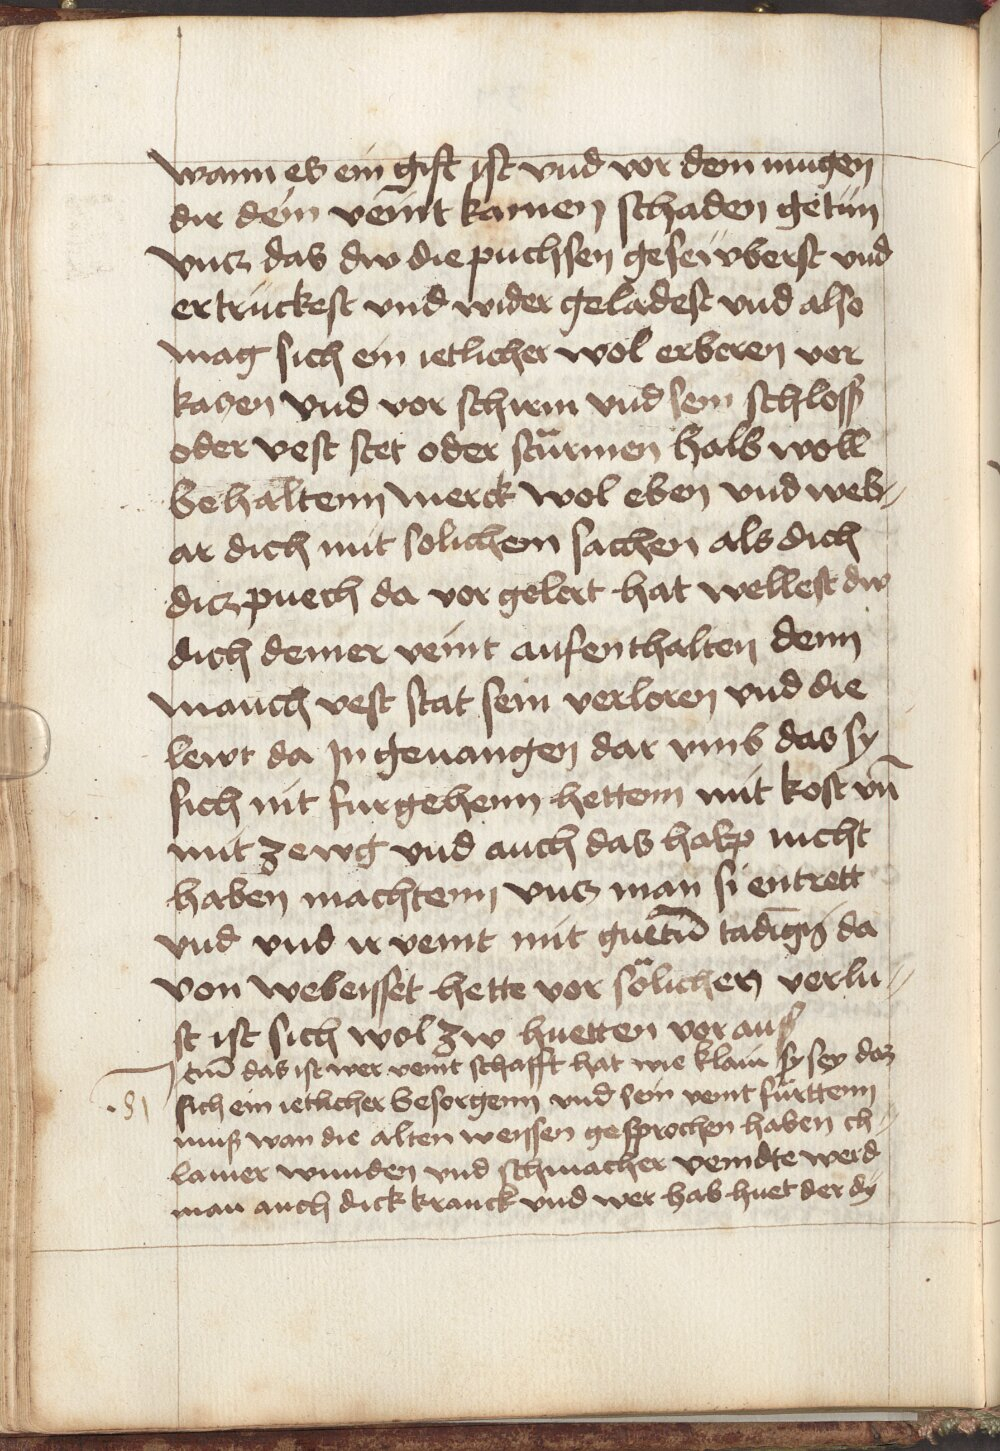 wann es ein gift ist vnd vor dem mugen
dir dein veint kainen schaden getun
vncz das dw die puchsen geseẅberst vnd
ertruckest vnd wider geladest vnd also
mag sich ein ietlicher wol erberen vor
kaczen vnd vor schirm vnd sein schloss
oder vest stet oder stürmen halb woll
behaltenn Merck wol eben vnd web-
ar dich mit solichem sachen als dich
dicz puech da vor gelert hat wellest dw
dich deiner veint aufenthalten denn
manch vest stat sein verloren vnd die
lewt da Jn geuangen dar vmb das sy
sich nit furgehenn hettenn mit kost vn̄
mit zewg vnd auch das hakp nicht
haben machtenn vncz man si entrett
vnd vnd ir veint mit guetm̄ tading da
von webeisset hette vor sölichen verlu-
st ist sich wol zw huetten vor aus
Jtm̄ das ist wer veint schafft hat wie klain sy sey daz
.81 sich ein ietlicher besorgenn vnd sein veint fürttenn
muß wan die alten weissen gesprochen haben ch-
lainer wunden vnd schwacher veindte werd
man auch dick kranck vnd wer hab huet der dy